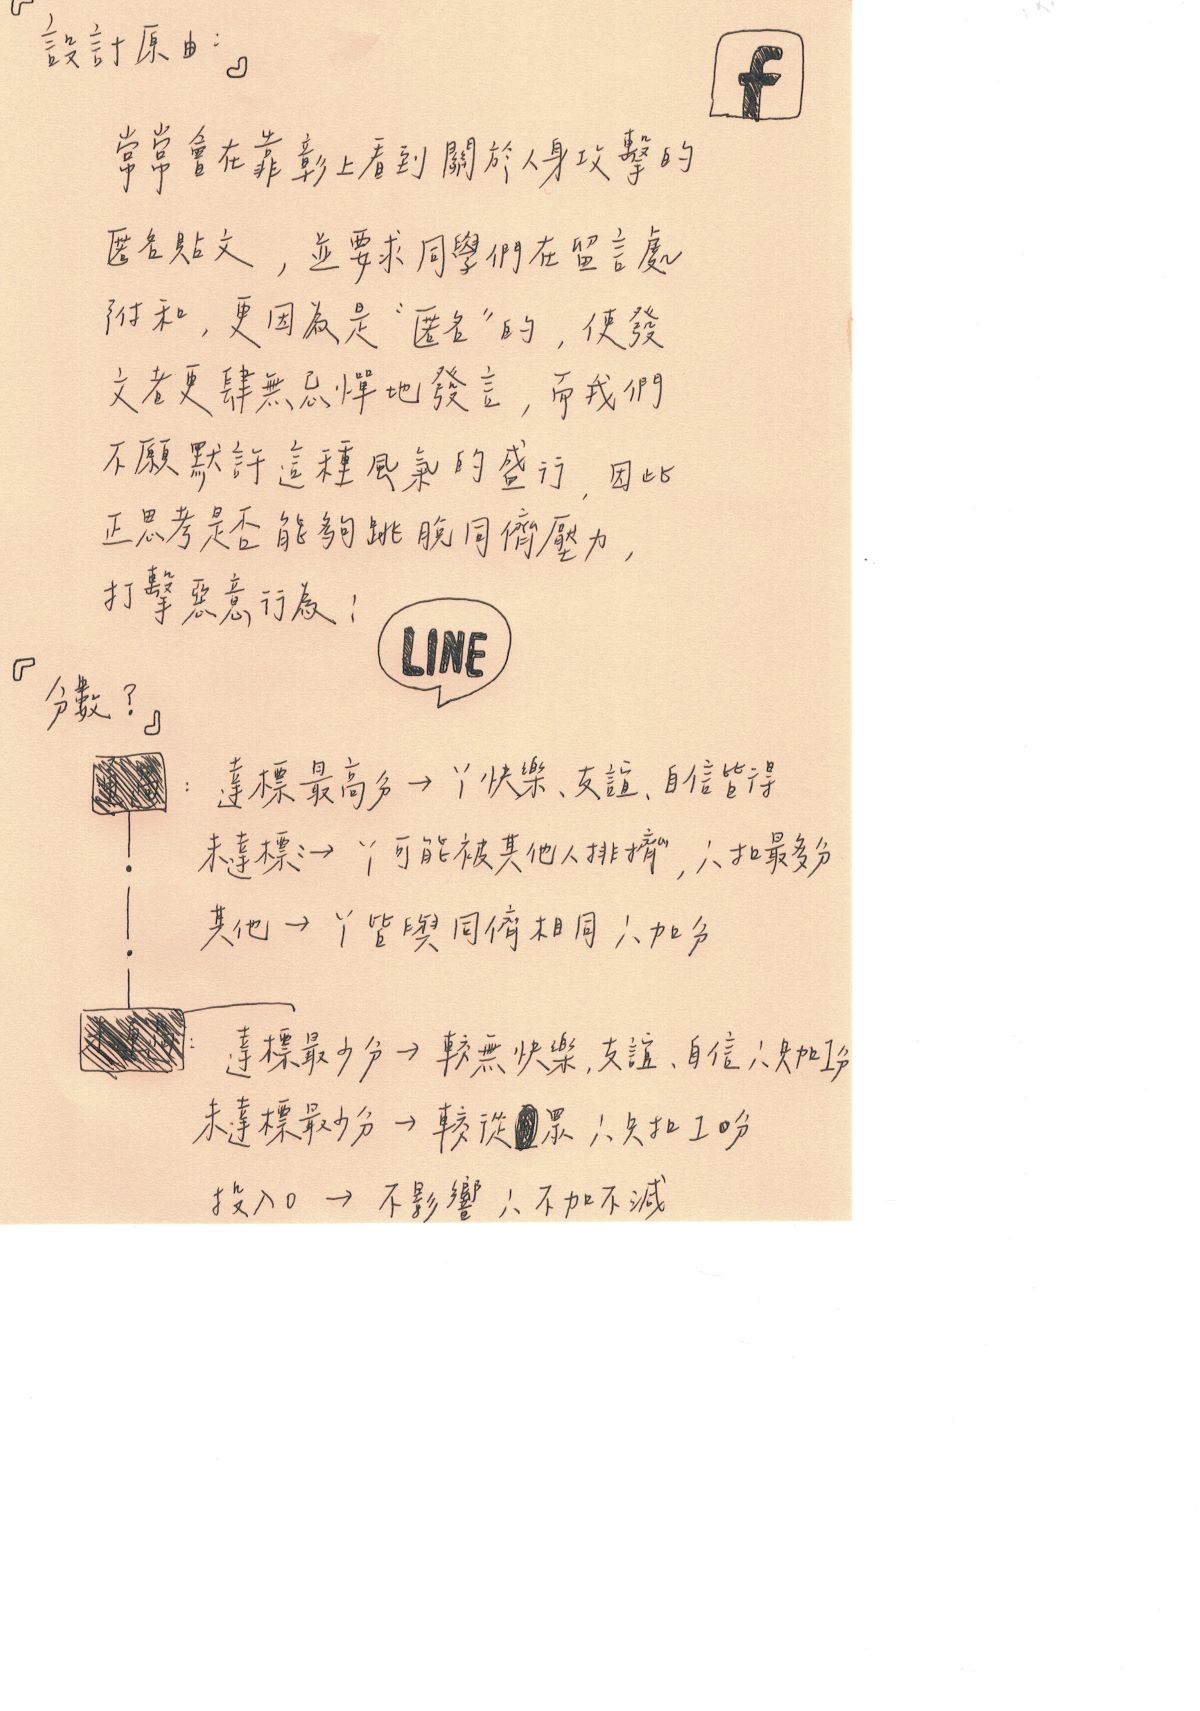 『設計原由:』
f
常常會在靠彰上看到關於人身攻擊的
匿名貼文，並要求同學們在留言處
附和，更因為是〝匿名〞的，使發
文者更肆無忌憚地發言，而我們
不願默許這種風氣的盛行，因此
正思考是否能夠跳脫同儕壓力，
打擊惡意行為！
LINE
『分數？』
：達標最高分→∵快樂、友誼、自信皆得
未達標→∵可能被其他人排擠，∴扣最多分
其他→∵皆與同儕相同∴加分
：達標最少分→較無快樂、友誼、自信∴只加1分
未達標最少分→較從眾∴只扣10分
投入0→不影響∴不加不減